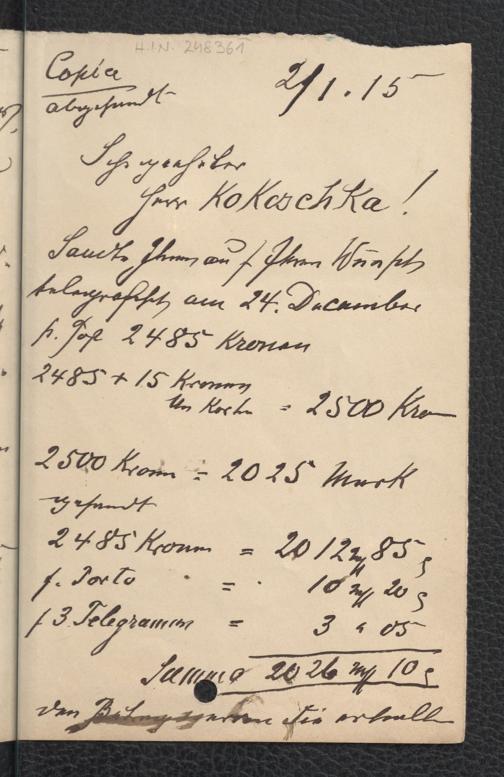 H.I.N. 248361
Copia 2/1.15
abgesandt
Sehr geehrter
Herr Kokoschka!
Sandte Ihnen auf Ihren Wunsch
telegrafisch am 24. Dezember
p. Post 2485 Kronen
2485 + 15 Kronen
Un Kosten = 2500 Kro
2500 Kronen = 2025 Mark
gesandt
2485 Kronen = 2012 M 85 ₰
f. Porto = 10 M 20 ₰
f 3 Telegramme = 3 " 05
Summa 2026 M 10 ₰
den Sie erhalten